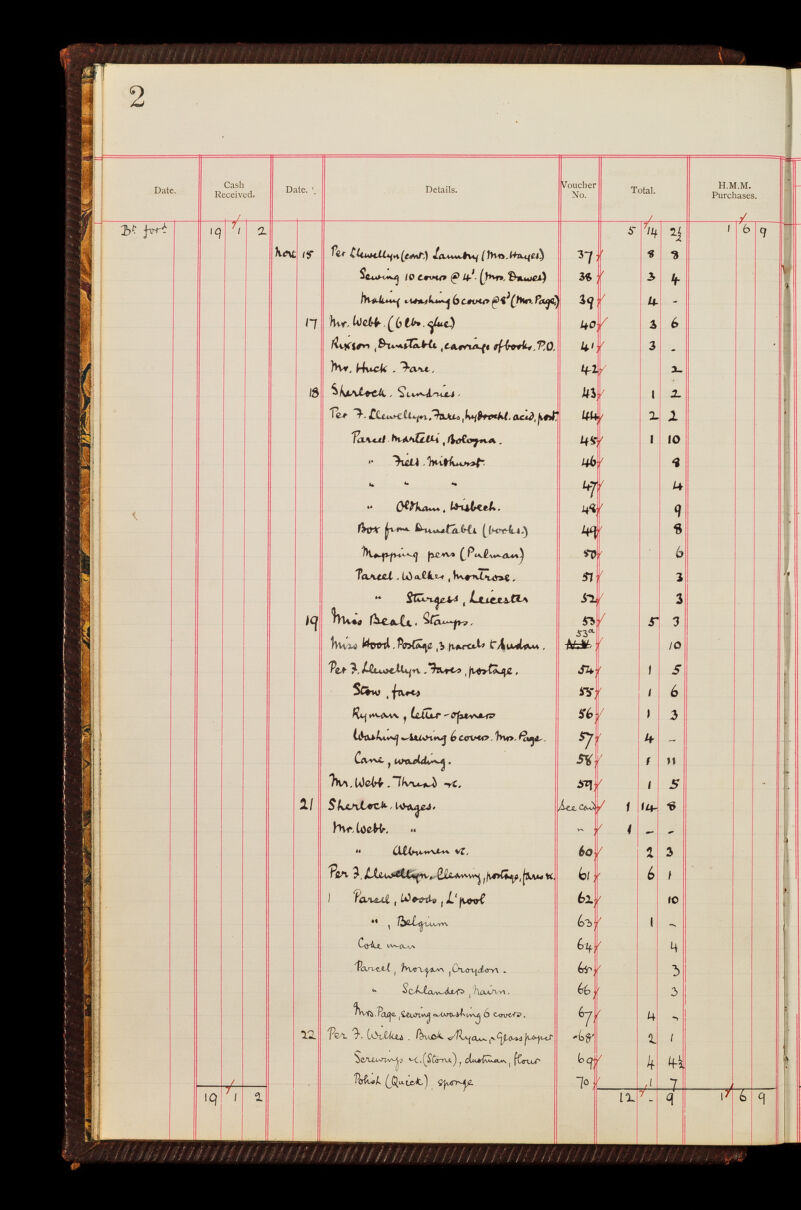 2
Date. Cash Received. Date. Details. Voucher No. Total. H.M.M. Purchases.
Bt. ford 19 1 2 5 14 2½ 1 6 9
Nov 15 Per Llewellyn (cont.) Laundry (Mrs. Hayes) 37 8 3
Sewing 10 covers @ 4d. (Mrs. Dawes) 38 3 4
Making & washing 6 covers @ 8d (Mrs. Page) 39 4 -
17 Mr. Webb. (6 lbs. glue) 40 3 6
Rixson, Dunstable, carriage of books. P.O. 41 3 -
Mr. Huck. Fare. 42 2
18 Sherlock. Sundries. 43 1 2
Per F. Llewellyn, Fares, hydrochl. acid, post. 44 2 2
Parcel. Martelli, Bologna. 45 1 10
" Field. Midhurst. 46 9
" " " 47 4
" Oldham, Wisbech. 48 9
Box from Dunstable (books.) 49 8
Mapping pens (Pulman) 50 6
Parcel. Walker, Montrose. 51 3
" Sturgess, Leicester 52 3
19 Miss Beale. Stamps. 53 5 3
Miss Hood. Postage, 3 parcels to 53a 10
Per F. Llewellyn. Fares, postage. 54 1 5
Stow, fares 55 1 6
Ryman, letter-openers 56 1 3
Washing & sewing 6 covers. Mrs. Page. 57 4 -
Cane, wadding. 58 1 11
Mr. Webb. Thread &c. 59 1 5
21 Sherlock. Wages. See Card 1 14 8
Mr. Webb. " " 1 - -
" Albumen &c. 60 2 3
Per F. Llewellyn. Cleaning, postage, fares &c. 61 6 1
Parcel, Woods, L'pool 62 10
", Belgium 63 1 -
Coke man 64 4
Parcel, Morgan, Croydon. 65 3
" Schlanders, Nairn. 66 3
Mrs. Page, sewing & washing 6 covers. 67 4 -
22 Per F. Wilkes. Buck & Ryan, glasspaper 68 2 1
Screwrings &c. (Stone), dustman, flour 69 4 4½
Polish (Quick) sponge 70 1 7
19 1 2 12 - 9 1 6 9